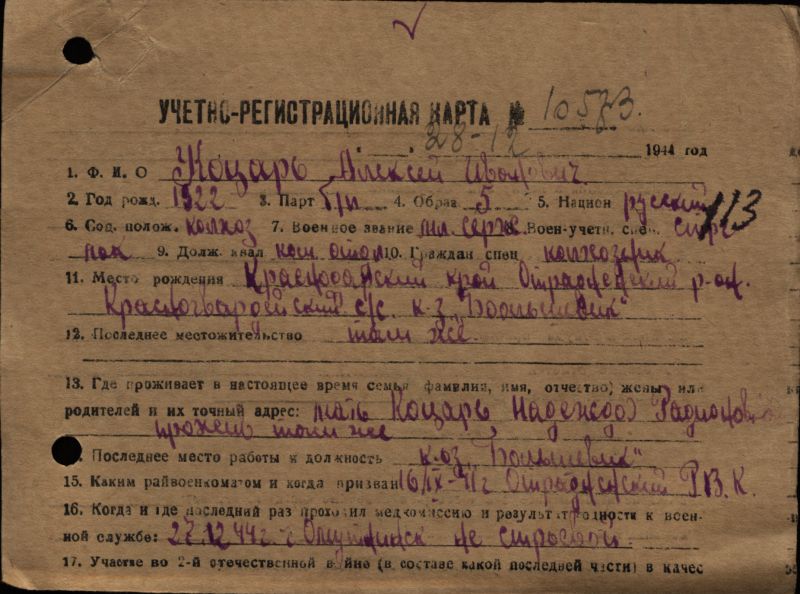 УЧЕТНО-РЕГИСТРАЦИОННАЯ КАРТА № 10573.
28-12 1944 год
1. Ф. И. О Коцарь Алексей Иванович
2. Год рожд. 1922 3. Парт б/п 4. Образ 5 5. Национ русский 113
6. Соц. полож. колхоз 7. Военное звание мл. серж. 8. Воен-учетн. спец. стре
лок 9. Долж. квал ком отдел 10. Граждан спец колхозник
11. Место рождения Краснодарский край Отрадненский р-он.
Красногвардейский с/с. к-з „Большевик"
12. Последнее местожительство там же
13. Где проживает в настоящее время семья фамилия, имя, отчество) жены или
родителей и их точный адрес: мать Коцарь Надежда Радионовна
прожив там же
. Последнее место работы и должность к-оз „Большевик"
15. Каким райвоенкоматом и когда призван 16/IX-41г Отрадненский Р.В.К.
16. Когда и где последний раз проходил медкомиссию и результат годности к воен-
ной службе: 27.12.44г. г. Омутнинск не строевой.
17. Участие во 2-й отечественной войне (в составе какой последней части) в качес